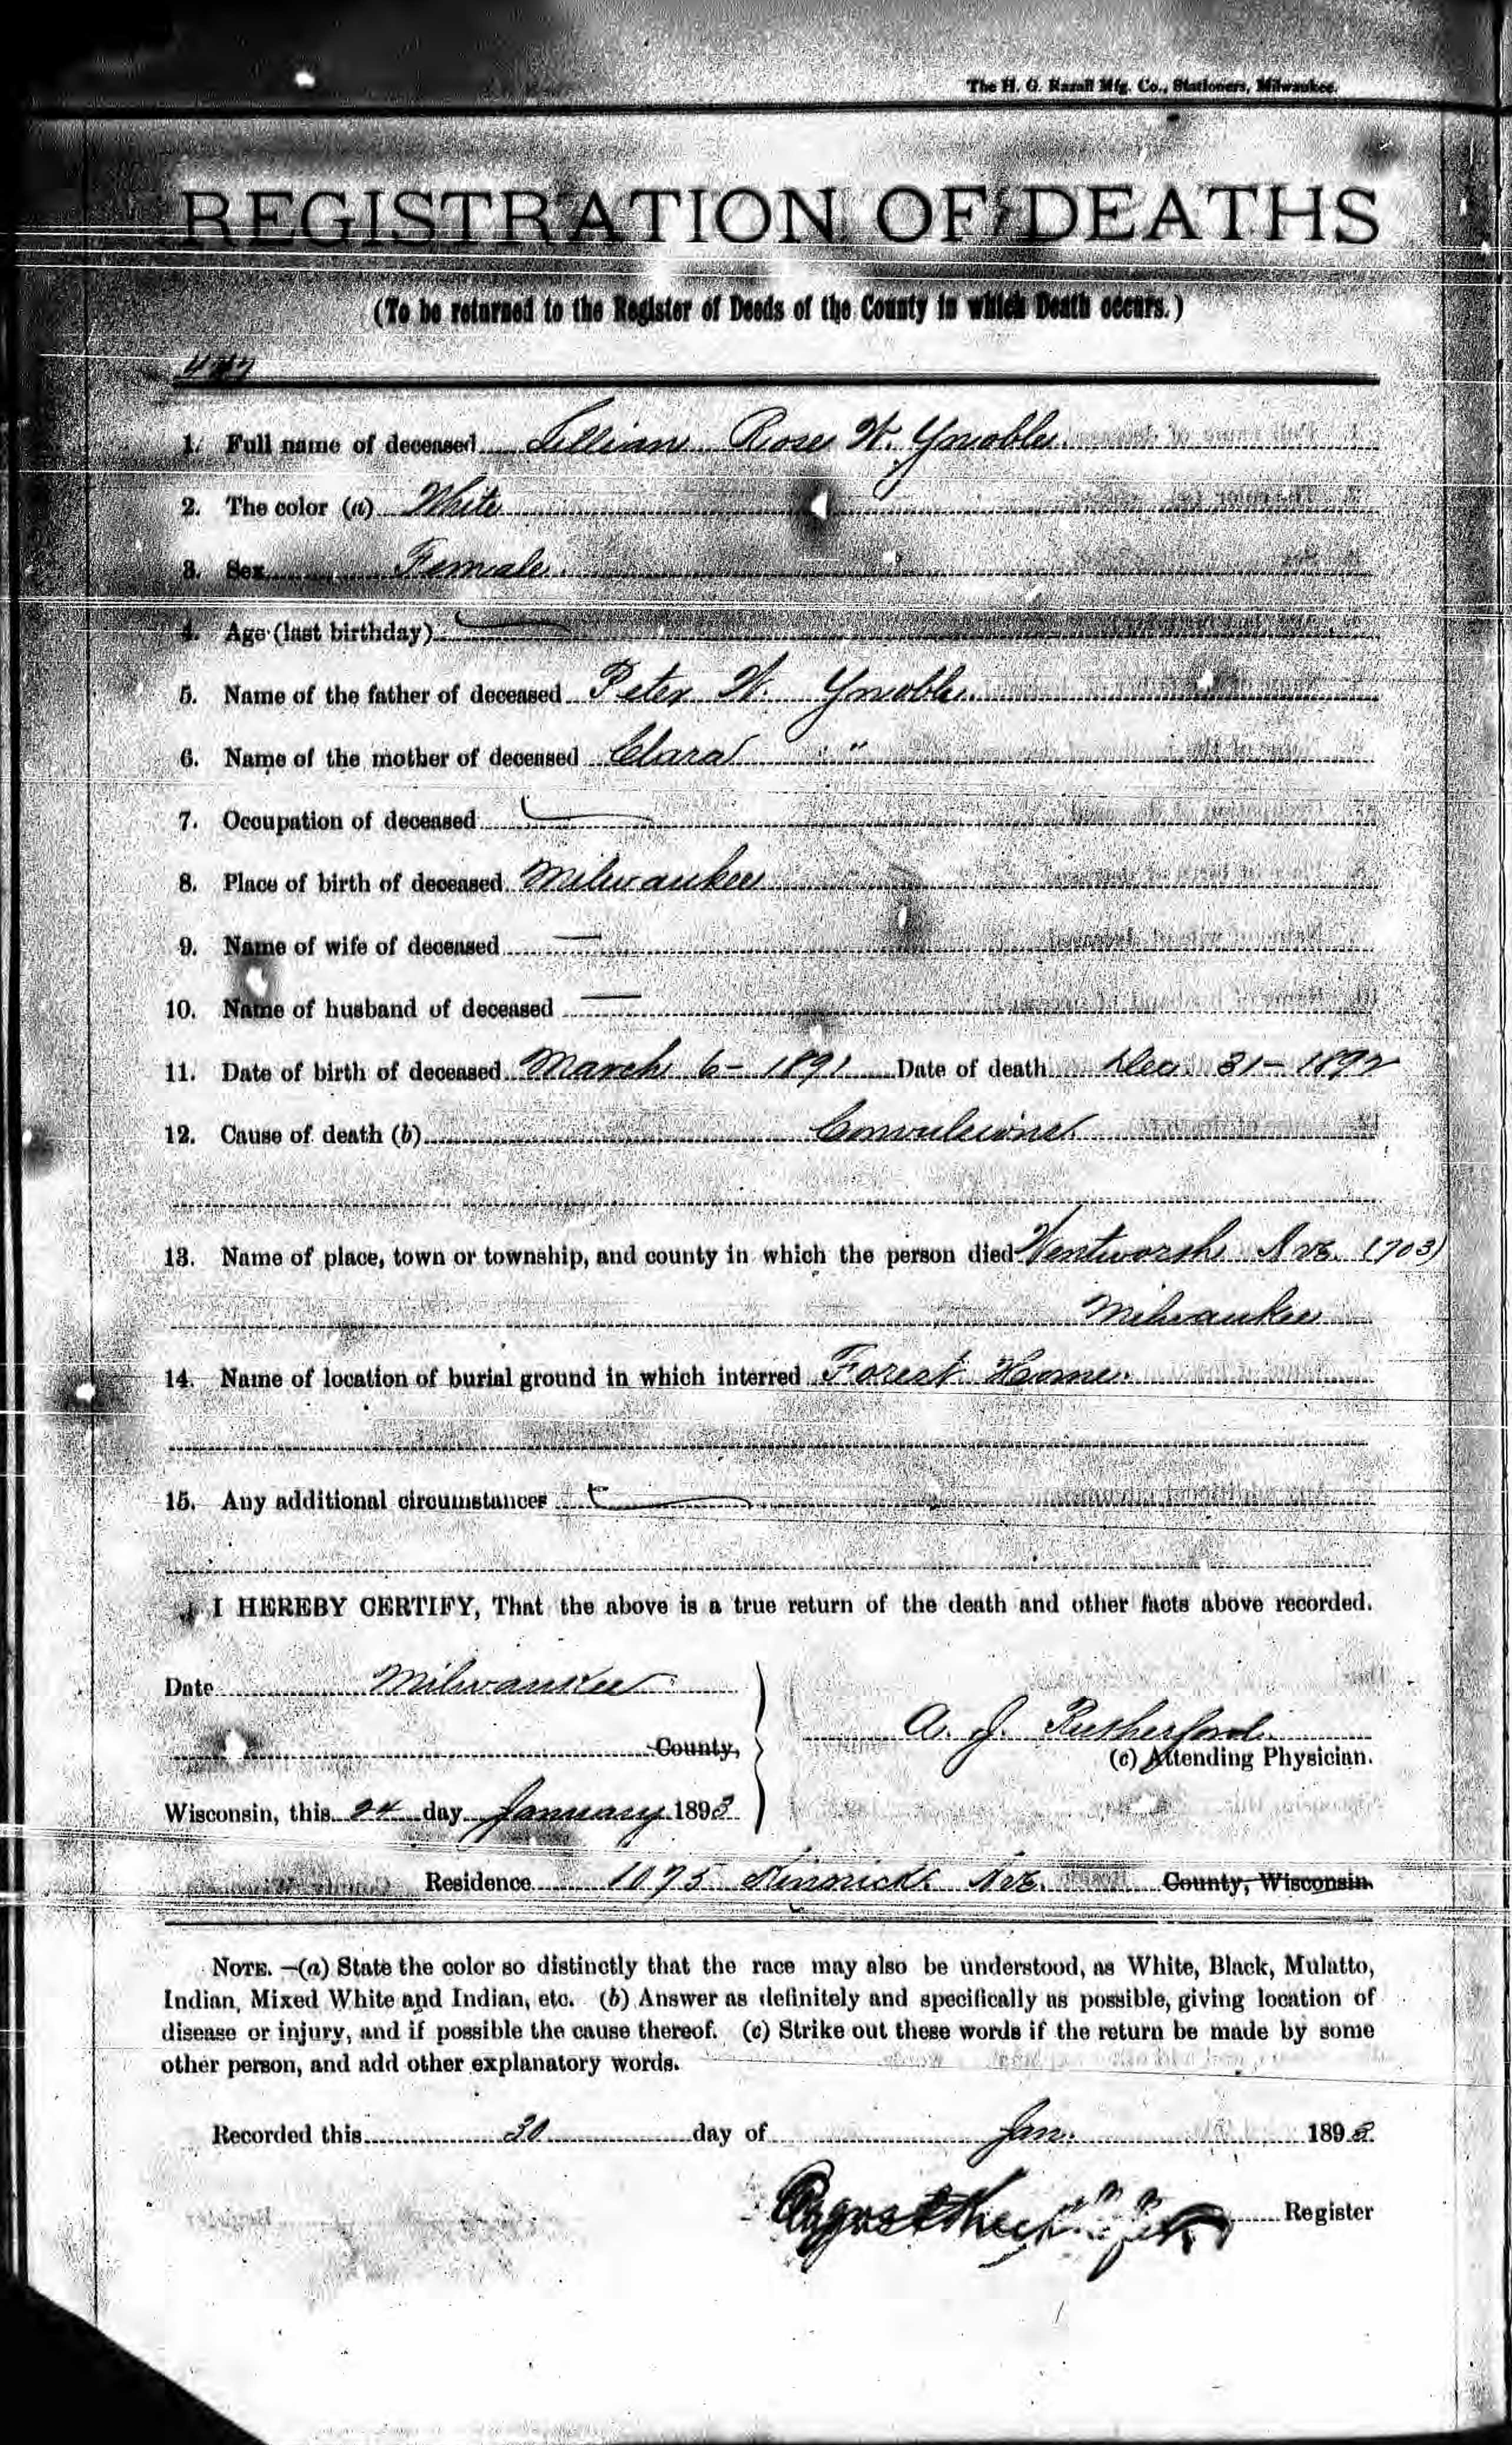 The H. G. Razall Mfg. Co., Stationers, Milwaukee.
REGISTRATION OF DEATHS
(To be returned to the Register of Deeds of the County in which Death occurs.)
1. Full name of deceased Lillian Rose W. Ymoble
2. The color (a) White
3. Sex Female
4. Age (last birthday)
5. Name of the father of deceased Peter W. Ymoble
6. Name of the mother of deceased Clara "
7. Occupation of deceased
8. Place of birth of deceased Milwaukee
9. Name of wife of deceased —
10. Name of husband of deceased —
11. Date of birth of deceased March 6 – 1891 Date of death Dec. 31 – 1892
12. Cause of death (b) Convulsions
13. Name of place, town or township, and county in which the person died Wentworth Ave. (703)
Milwaukee
14. Name of location of burial ground in which interred Forest Home
15. Any additional circumstances
I HEREBY CERTIFY, That the above is a true return of the death and other facts above recorded.
Date Milwaukee
A. J. Rutherford
County,
(c) Attending Physician.
Wisconsin, this 24 day January 1893
Residence 1075 Kinnickk Ave. County, Wisconsin.
NOTE. —(a) State the color so distinctly that the race may also be understood, as White, Black, Mulatto,
Indian, Mixed White and Indian, etc. (b) Answer as definitely and specifically as possible, giving location of
disease or injury, and if possible the cause thereof. (c) Strike out these words if the return be made by some
other person, and add other explanatory words.
Recorded this 30 day of Jan. 1893
Register